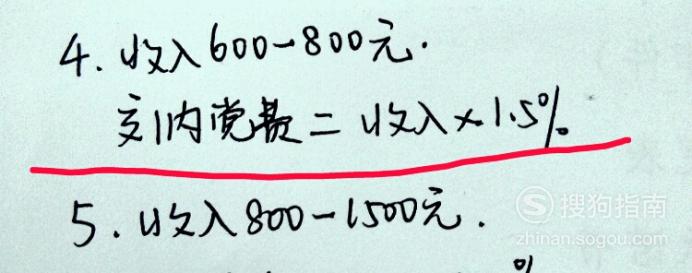 4. 收入600-800元.
交内党费=收入×1.5%
5. 收入800-1500元.
搜狗指南
zhinan.sogou.com
%